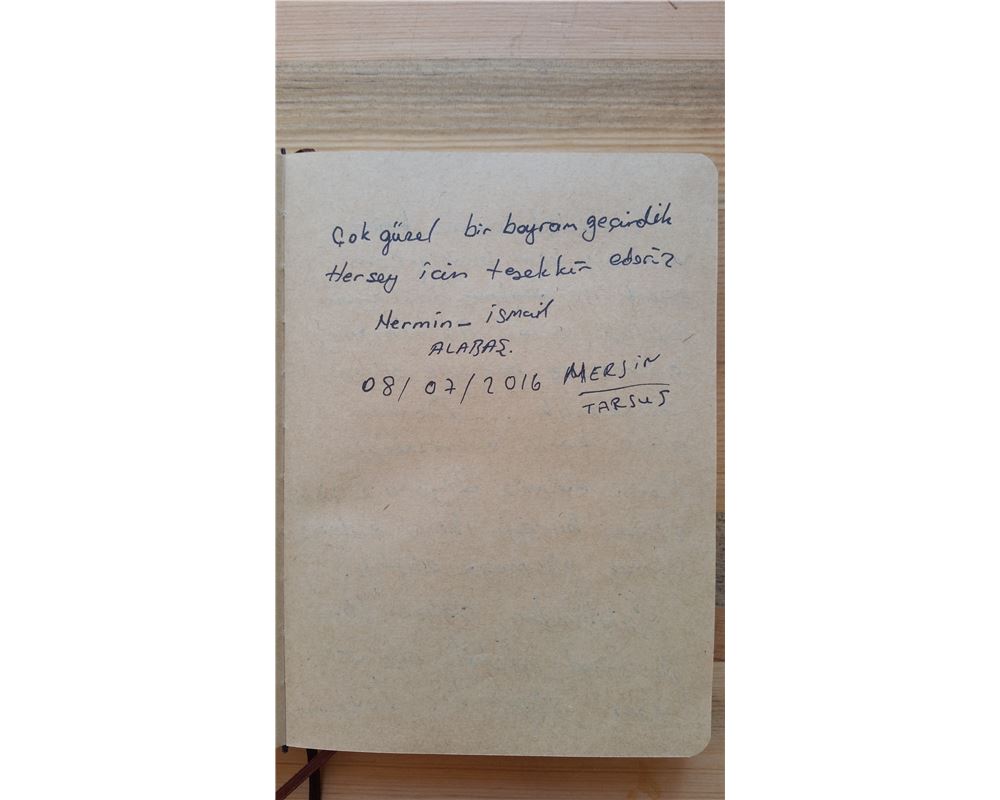 Çok güzel bir bayram geçirdik
Hersey için teşekkür ederiz
Nermin - ismail
ALABAŞ.
08/07/2016 MERSİN
TARSUS